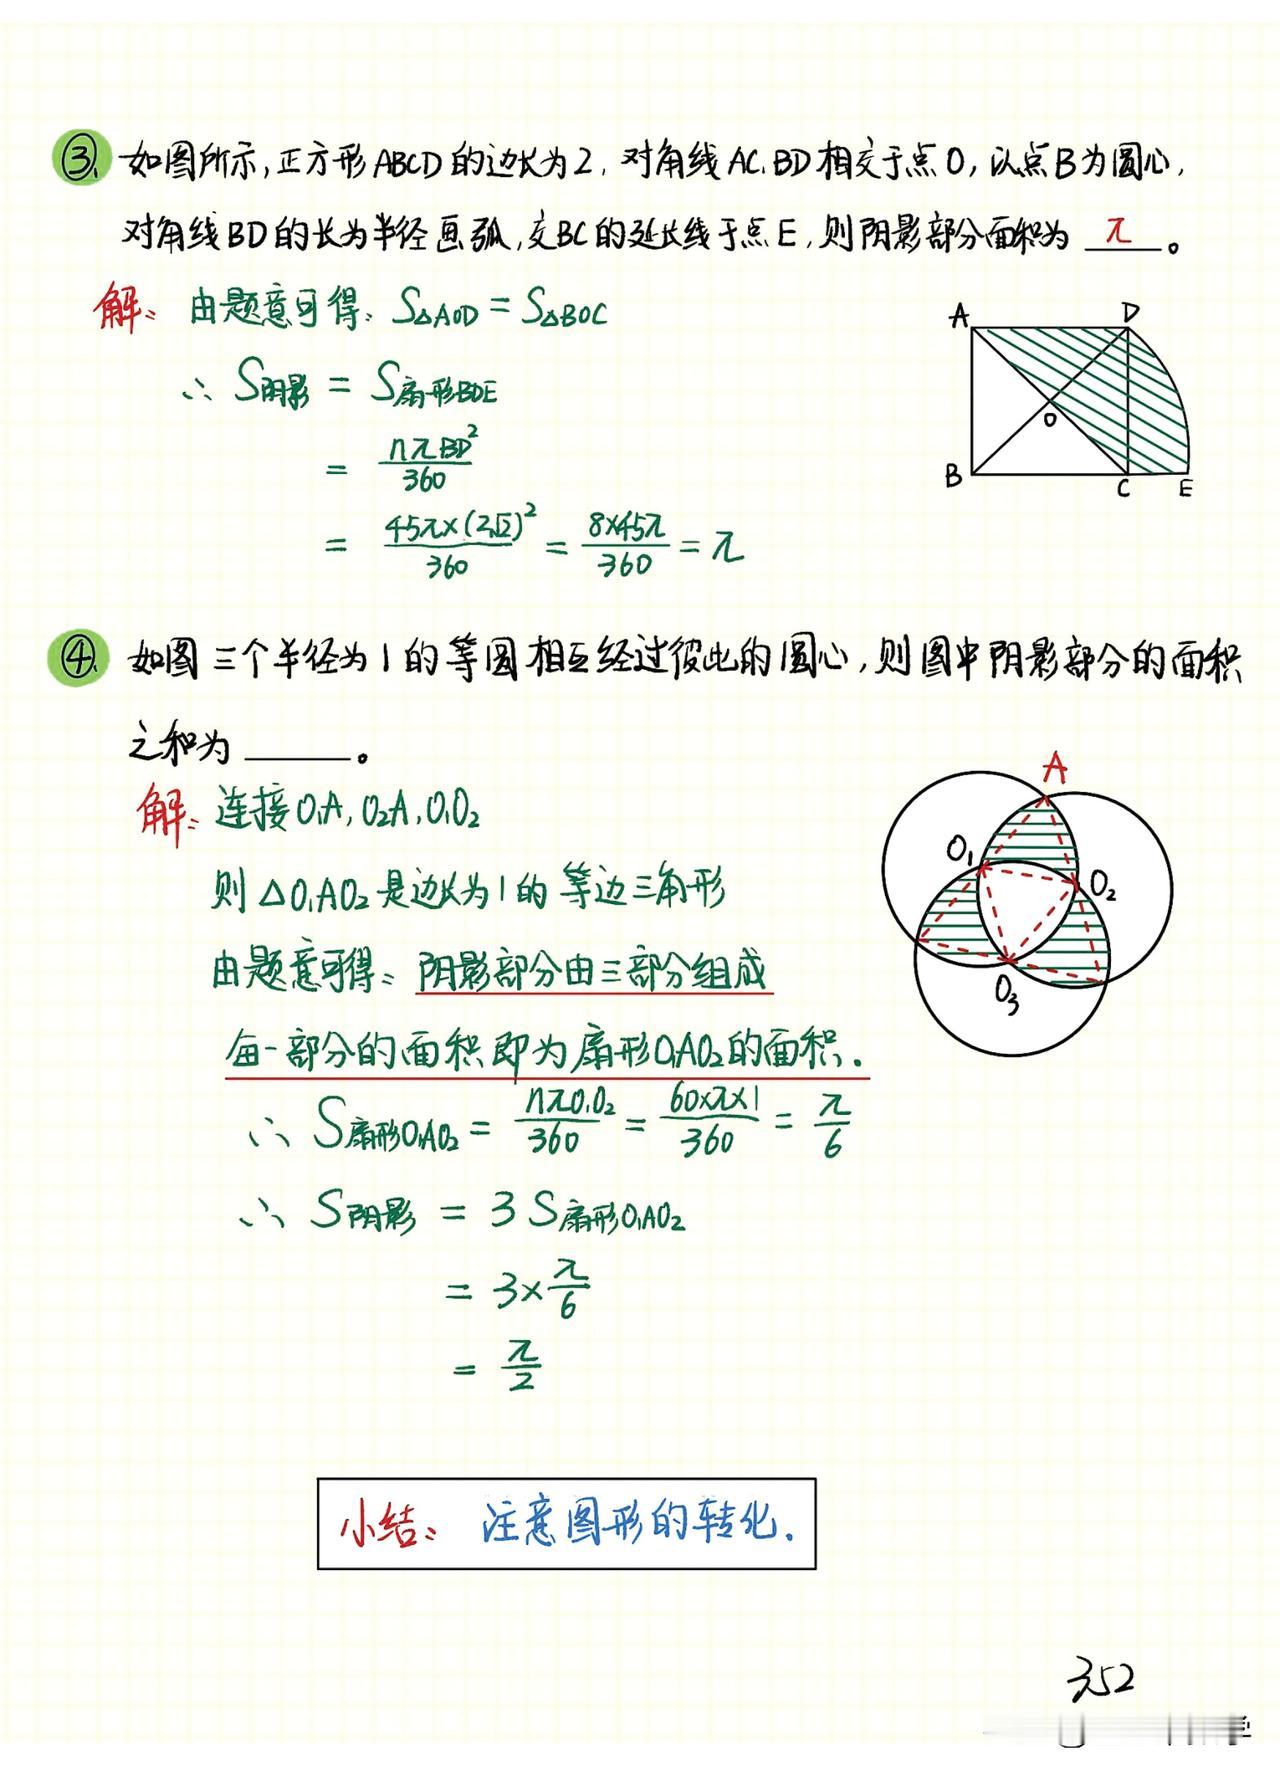 ③ 如图所示,正方形ABCD的边长为2,对角线AC、BD相交于点O,以点B为圆心,
对角线BD的长为半径画弧,交BC的延长线于点E,则阴影部分面积为 π 。
解: 由题意可得: S△AOD = S△BOC
∴ S阴影 = S扇形BDE
= nπBD²/360
= 45π×(2√2)²/360 = 8×45π/360 = π
A D
O
B C E
④ 如图三个半径为1的等圆相互经过彼此的圆心,则图中阴影部分的面积
之和为 ______ 。
解: 连接O₁A, O₂A, O₁O₂
则 △O₁AO₂是边长为1的等边三角形
由题意可得: 阴影部分由三部分组成
每一部分的面积即为扇形O₁AO₂的面积.
∴ S扇形O₁AO₂ = nπO₁O₂/360 = 60×π×1/360 = π/6
∴ S阴影 = 3 S扇形O₁AO₂
= 3×π/6
= π/2
A
O₁ O₂
O₃
小结: 注意图形的转化.
352